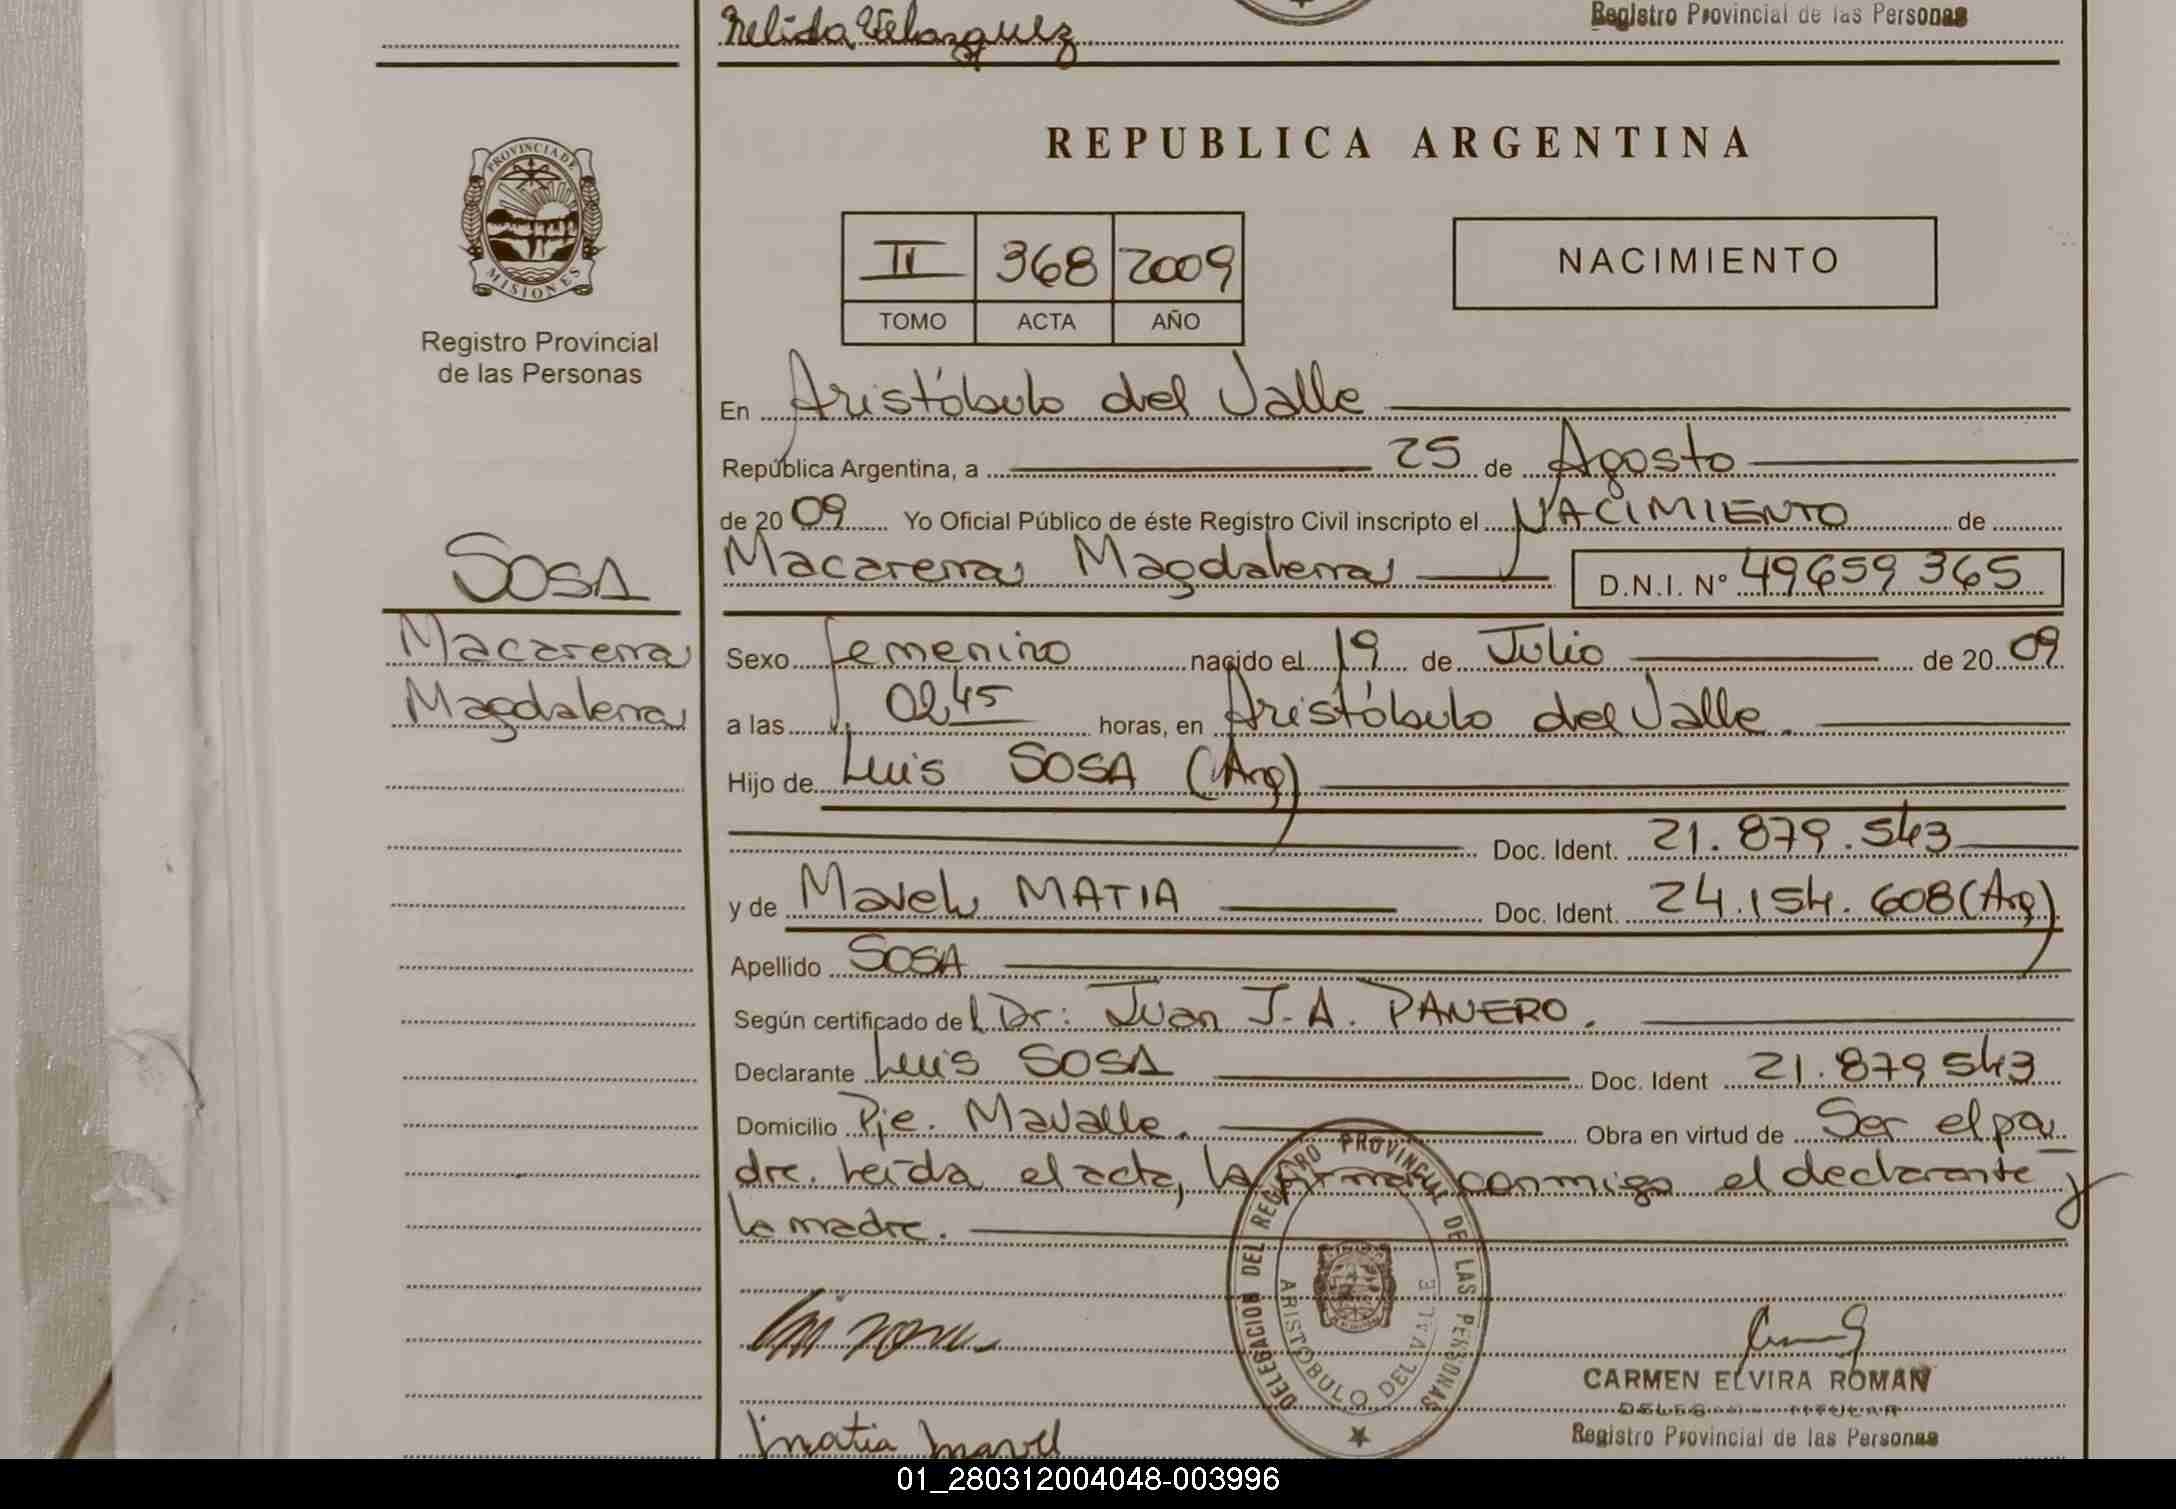 Nelida Velazquez
Registro Provincial de las Personas
PROVINCIA DE
MISIONES
Registro Provincial
de las Personas
REPUBLICA ARGENTINA
II 368 2009
TOMO ACTA AÑO
NACIMIENTO
En Aristóbulo del Valle
República Argentina, a 25 de Agosto
de 20 09 Yo Oficial Público de éste Registro Civil inscripto el NACIMIENTO de
Macarena Magdalena D.N.I. Nº 49659365
SOSA
Macarena
Magdalena
Sexo femenino nacido el 19 de Julio de 20 09
a las 02 45 horas, en Aristóbulo del Valle.
Hijo de Luis SOSA (Arg)
Doc. Ident. 21.879.543
y de Mavel MATIA Doc. Ident. 24.154.608 (Arg)
Apellido SOSA
Según certificado del Dr: Juan J.A. PANERO.
Declarante Luis SOSA Doc. Ident 21.879543
Domicilio Pje. Mavalle. Obra en virtud de Ser el pa
dre. Leída el acta, la firman conmigo el declarante y
la madre.
DELEGACION DEL REGISTRO PROVINCIAL DE LAS PERSONAS
ARISTOBULO DEL VALLE
CARMEN ELVIRA ROMAN
DELEGADA TITULAR
Registro Provincial de las Personas
Matia Mavel
01_280312004048-003996